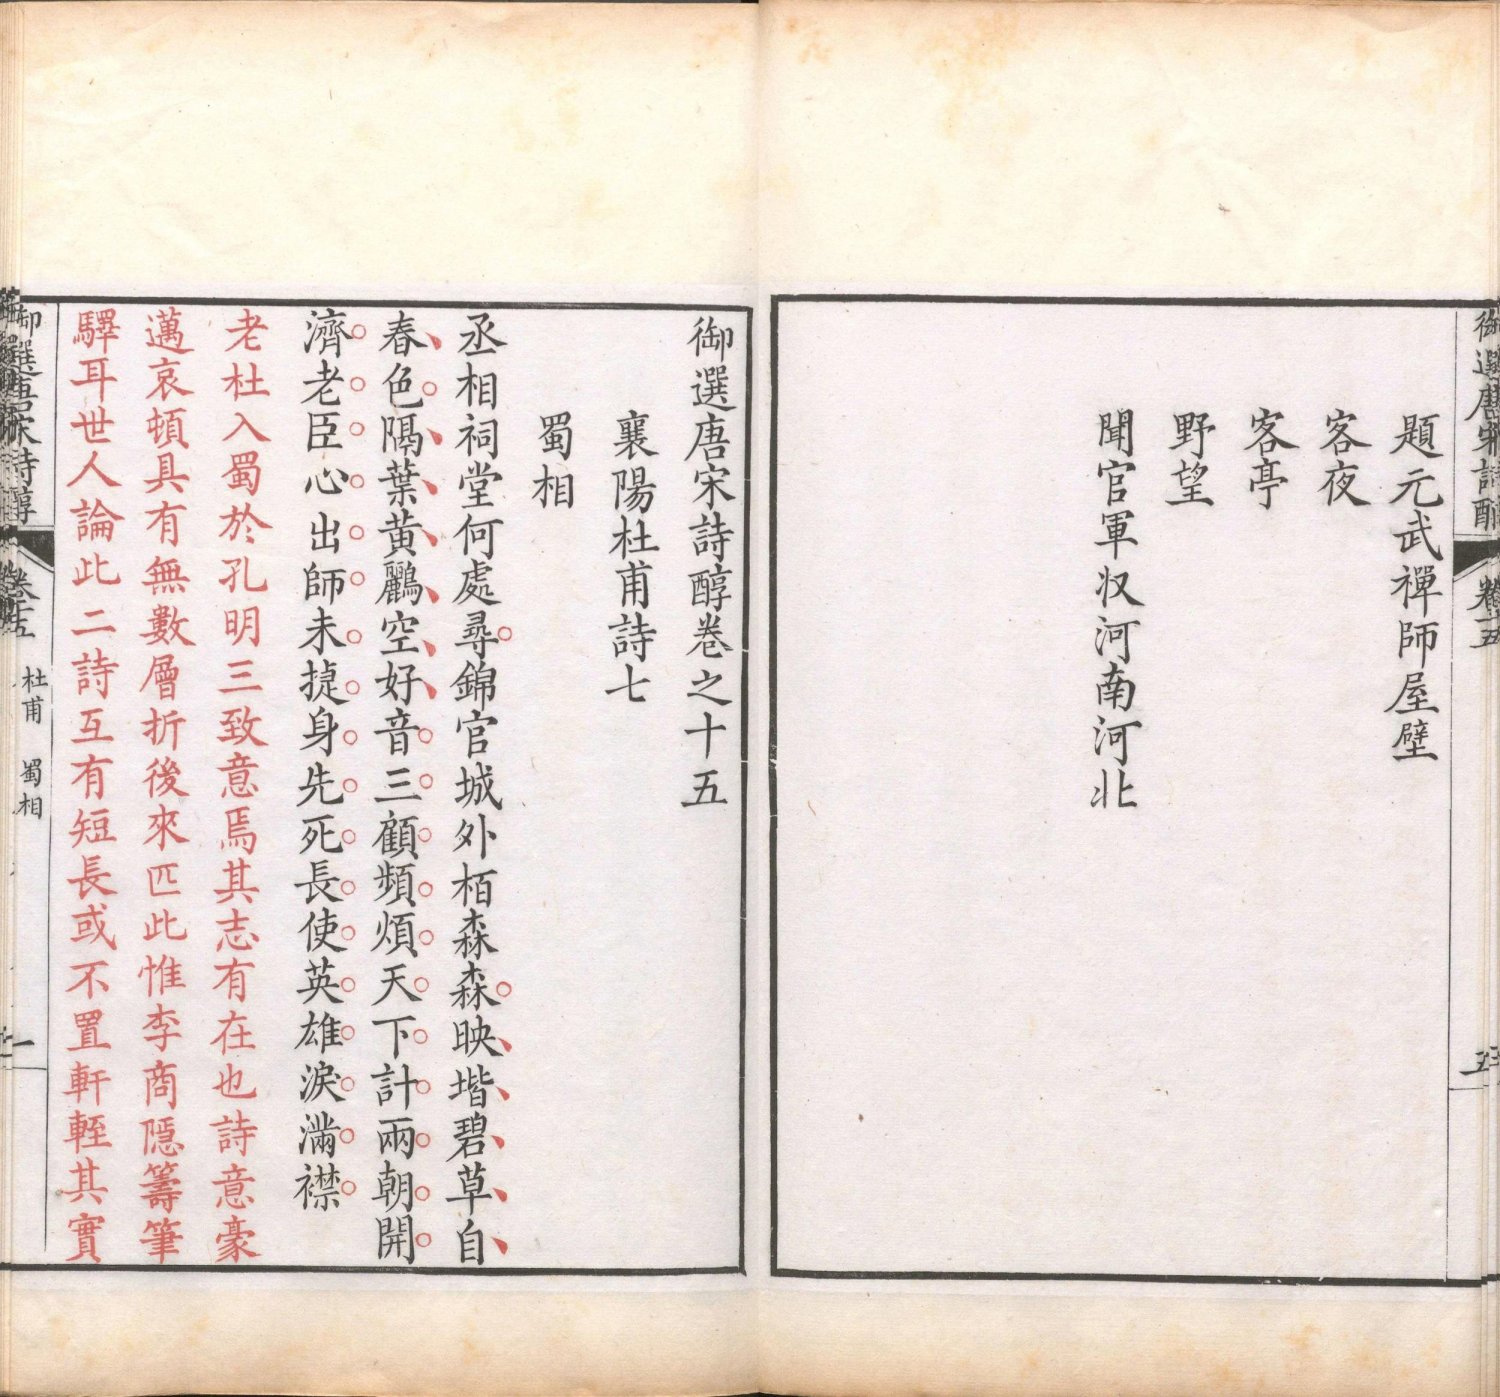 御選唐宋詩醇 卷十五 五
題元武禪師屋壁
客夜
客亭
野望
聞官軍収河南河北
御選唐宋詩醇卷之十五
襄陽杜甫詩七
蜀相
丞相祠堂何處尋錦官城外栢森森映堦碧草自
春色隔葉黄鸝空好音三顧頻煩天下計兩朝開
濟老臣心出師未㨗身先死長使英雄淚滿襟
老杜入蜀於孔明三致意焉其志有在也詩意豪
邁哀頓具有無數層折後來匹此惟李商隱籌筆
驛耳世人論此二詩互有短長或不置軒輊其實
御選唐宋詩醇 卷十五 杜甫 蜀相 一